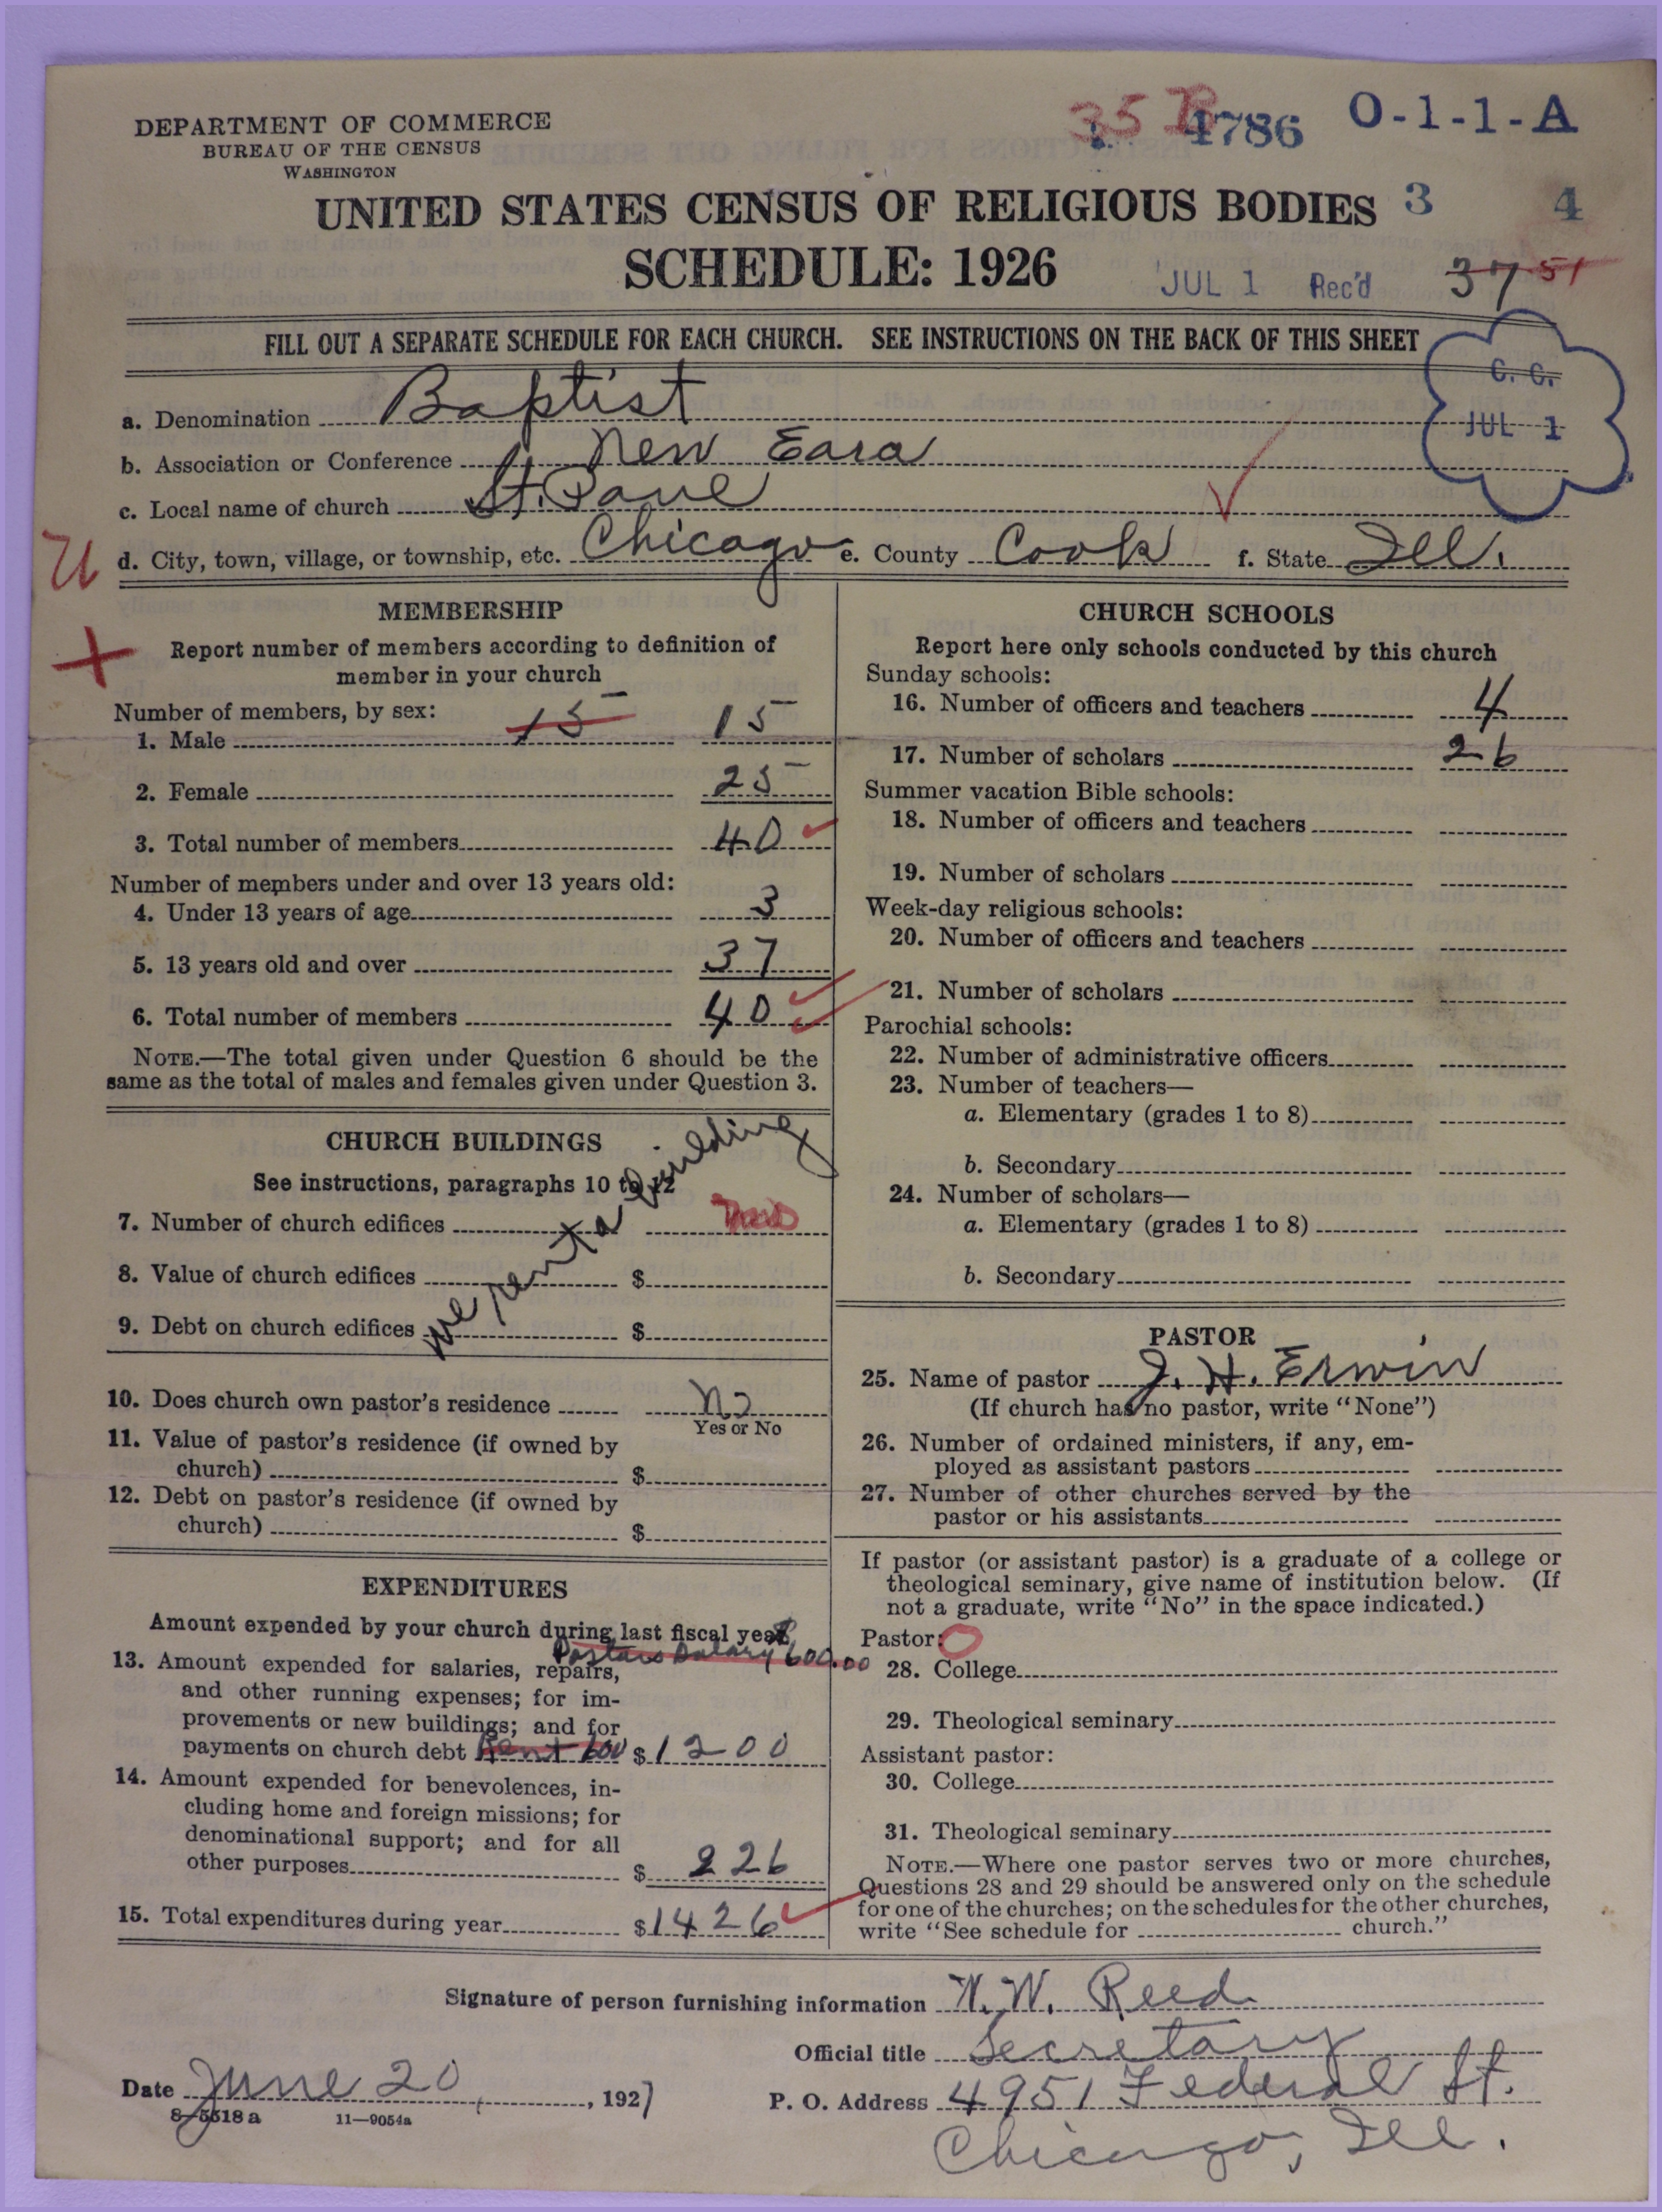 DEPARTMENT OF COMMERCE
BUREAU OF THE CENSUS
WASHINGTON
35 B 4786 O-1-1-A
UNITED STATES CENSUS OF RELIGIOUS BODIES 3 4
SCHEDULE: 1926
JUL 1 Rec'd 37 51
FILL OUT A SEPARATE SCHEDULE FOR EACH CHURCH. SEE INSTRUCTIONS ON THE BACK OF THIS SHEET
C. C.
JUL 1
a. Denomination Baptist
b. Association or Conference New Eara
c. Local name of church St. Paul
d. City, town, village, or township, etc. Chicago e. County Cook f. State Ill.
MEMBERSHIP
Report number of members according to definition of
member in your church
Number of members, by sex:
1. Male 15 15
2. Female 25
3. Total number of members 40
Number of members under and over 13 years old:
4. Under 13 years of age 3
5. 13 years old and over 37
6. Total number of members 40
NOTE.—The total given under Question 6 should be the
same as the total of males and females given under Question 3.
CHURCH BUILDINGS
See instructions, paragraphs 10 to 12
we rent a building
7. Number of church edifices
8. Value of church edifices $
9. Debt on church edifices $
10. Does church own pastor's residence No
Yes or No
11. Value of pastor's residence (if owned by
church) $
12. Debt on pastor's residence (if owned by
church) $
EXPENDITURES
Amount expended by your church during last fiscal year:
Pastors Salary 600.00
13. Amount expended for salaries, repairs,
and other running expenses; for im-
provements or new buildings; and for
payments on church debt Rent 600 $1200
14. Amount expended for benevolences, in-
cluding home and foreign missions; for
denominational support; and for all
other purposes $ 226
15. Total expenditures during year $1426
CHURCH SCHOOLS
Report here only schools conducted by this church
Sunday schools:
16. Number of officers and teachers 4
17. Number of scholars 26
Summer vacation Bible schools:
18. Number of officers and teachers
19. Number of scholars
Week-day religious schools:
20. Number of officers and teachers
21. Number of scholars
Parochial schools:
22. Number of administrative officers
23. Number of teachers—
a. Elementary (grades 1 to 8)
b. Secondary
24. Number of scholars—
a. Elementary (grades 1 to 8)
b. Secondary
PASTOR
25. Name of pastor J. H. Erwin
(If church has no pastor, write "None")
26. Number of ordained ministers, if any, em-
ployed as assistant pastors
27. Number of other churches served by the
pastor or his assistants
If pastor (or assistant pastor) is a graduate of a college or
theological seminary, give name of institution below. (If
not a graduate, write "No" in the space indicated.)
Pastor:
28. College
29. Theological seminary
Assistant pastor:
30. College
31. Theological seminary
NOTE.—Where one pastor serves two or more churches,
Questions 28 and 29 should be answered only on the schedule
for one of the churches; on the schedules for the other churches,
write "See schedule for church."
Signature of person furnishing information W. W. Reed
Official title Secretary
Date June 20, 1927
P. O. Address 4951 Federal St.
Chicago, Ill.
8-5518 a 11—9054a